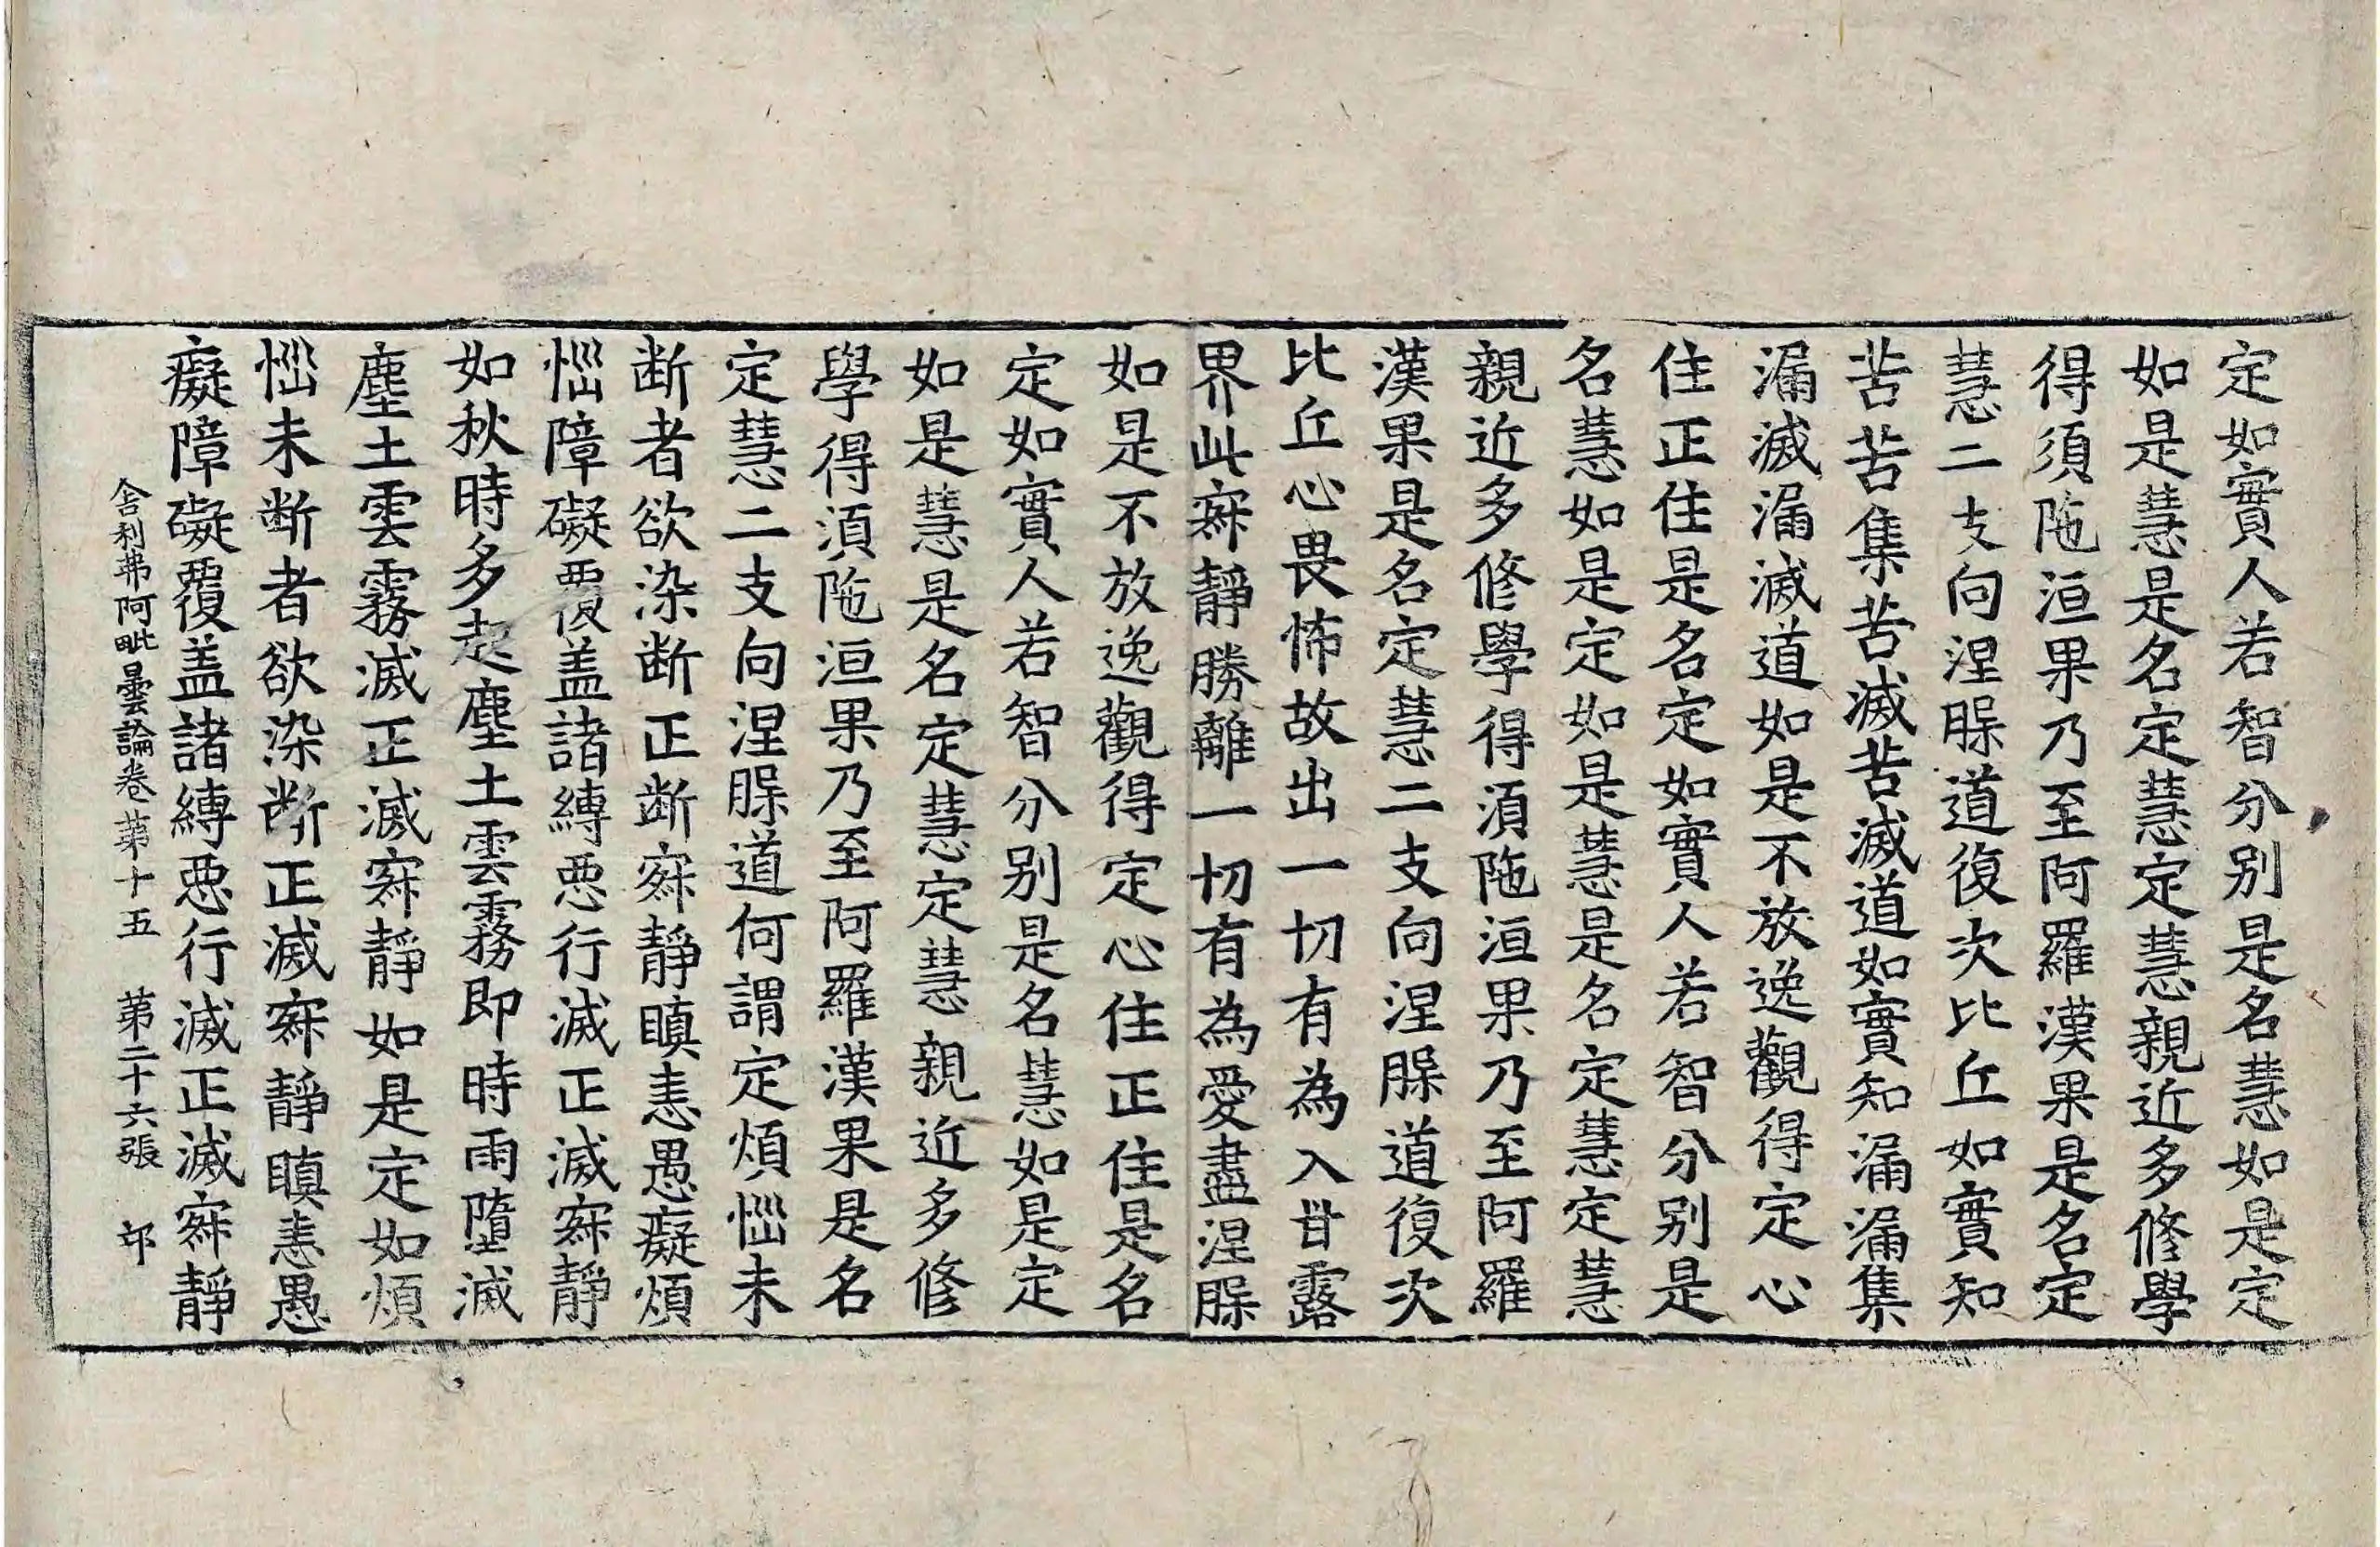 定如實人若智分別是名慧如是定
如是慧是名定慧定慧親近多修學
得須陁洹果乃至阿羅漢果是名定
慧二支向涅脲道復次比丘如實知
苦苦集苦滅苦滅道如實知漏漏集
漏滅漏滅道如是不放逸觀得定心
住正住是名定如實人若智分別是
名慧如是定如是慧是名定慧定慧
親近多修學得湏陁洹果乃至阿羅
漢果是名定慧二支向涅脲道復次
比丘心畏怖故出一切有為入甘露
界此寂靜勝離一切有為愛盡涅脲
如是不放逸觀得定心住正住是名
定如實人若智分別是名慧如是定
如是慧是名定慧定慧親近多修
學得湏陁洹果乃至阿羅漢果是名
定慧二支向涅脲道何謂定煩惱未
断者欲染断正断寂靜瞋恚愚癡煩
惱障礙覆盖諸縛惡行滅正滅寂靜
如秋時多起塵土雲霧即時雨墮滅
塵土雲霧滅正滅寂靜如是定如煩
惱未断者欲染断正滅寂靜瞋恚愚
癡障礙覆盖諸縛惡行滅正滅寂靜
舍利弗阿毗曇論卷第十五 第二十六張